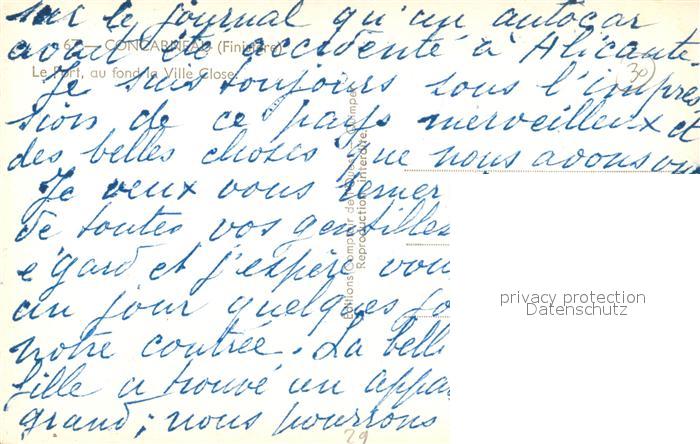 sur le journal qu'un autocar
67 — CONCARNEAU (Finistère)
avait été accidenté à Alicante.
Le Port, au fond la Ville Close
30
Je suis toujours sous l'impres
sion de ce pays merveilleux et
des belles choses que nous avons vu
Je veux vous remer
de toutes vos gentilles
égard et j'espère vou
un jour quelques jo
notre contrée. La belle
fille a trouvé un appa
grand; nous pourrons
29
Editions Comptoir de Quimper
Reproduction interdite
privacy protection
Datenschutz